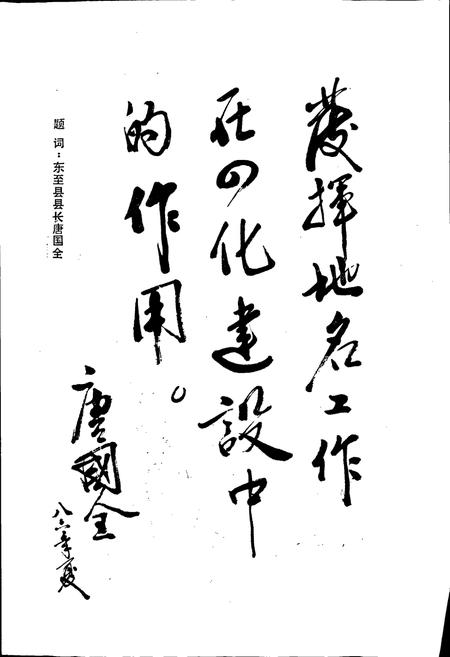 發揮地名工作
在四化建設中
的作用。
唐國全
八六年夏
题词：东至县县长唐国全